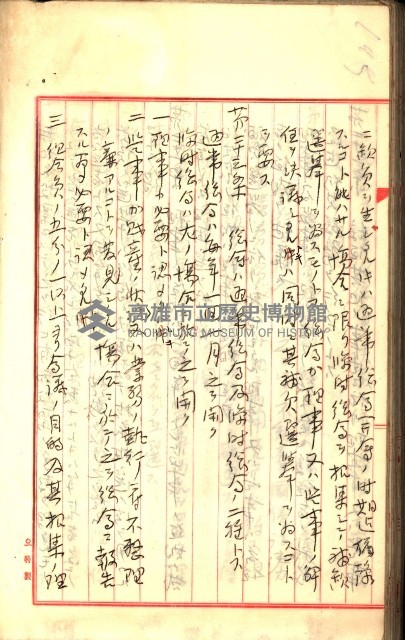 ニ欠員ヲ生シタルトキハ通常総会開会ノ時期
スルコト能ハサル場合ニ限リ臨時総会ヲ招集シテ補欠
選挙ヲ為スモノトス 総会カ理事又ハ監事ノ解
任ヲ決議シタルトキハ同時ニ其補欠選挙ヲ為スコト
ヲ要ス
第二十三条 総会ハ通常総会及臨時総会ノ二種トス
通常総会ハ毎年一回 月之ヲ開ク
臨時総会ハ左ノ場合ニ於テ之ヲ開ク
一 理事カ必要ト認メタルトキ
二 監事カ財産ノ状況又ハ業務ノ執行ニ付不整理
ノ廉アルコトヲ発見シタル場合ニ於テ之ヲ総会ニ報告
スル為メ必要ト認メタルトキ
三 組合員五分ノ一以上ヨリ会議ノ目的及其招集ノ理
高雄市立歷史博物館
KAOHSIUNG MUSEUM OF HISTORY